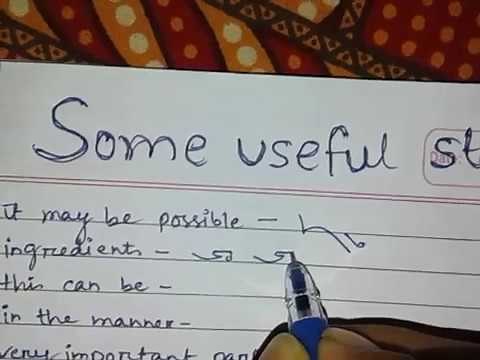 Some useful st
it may be possible -
ingredients -
this can be -
in the manner -
very important